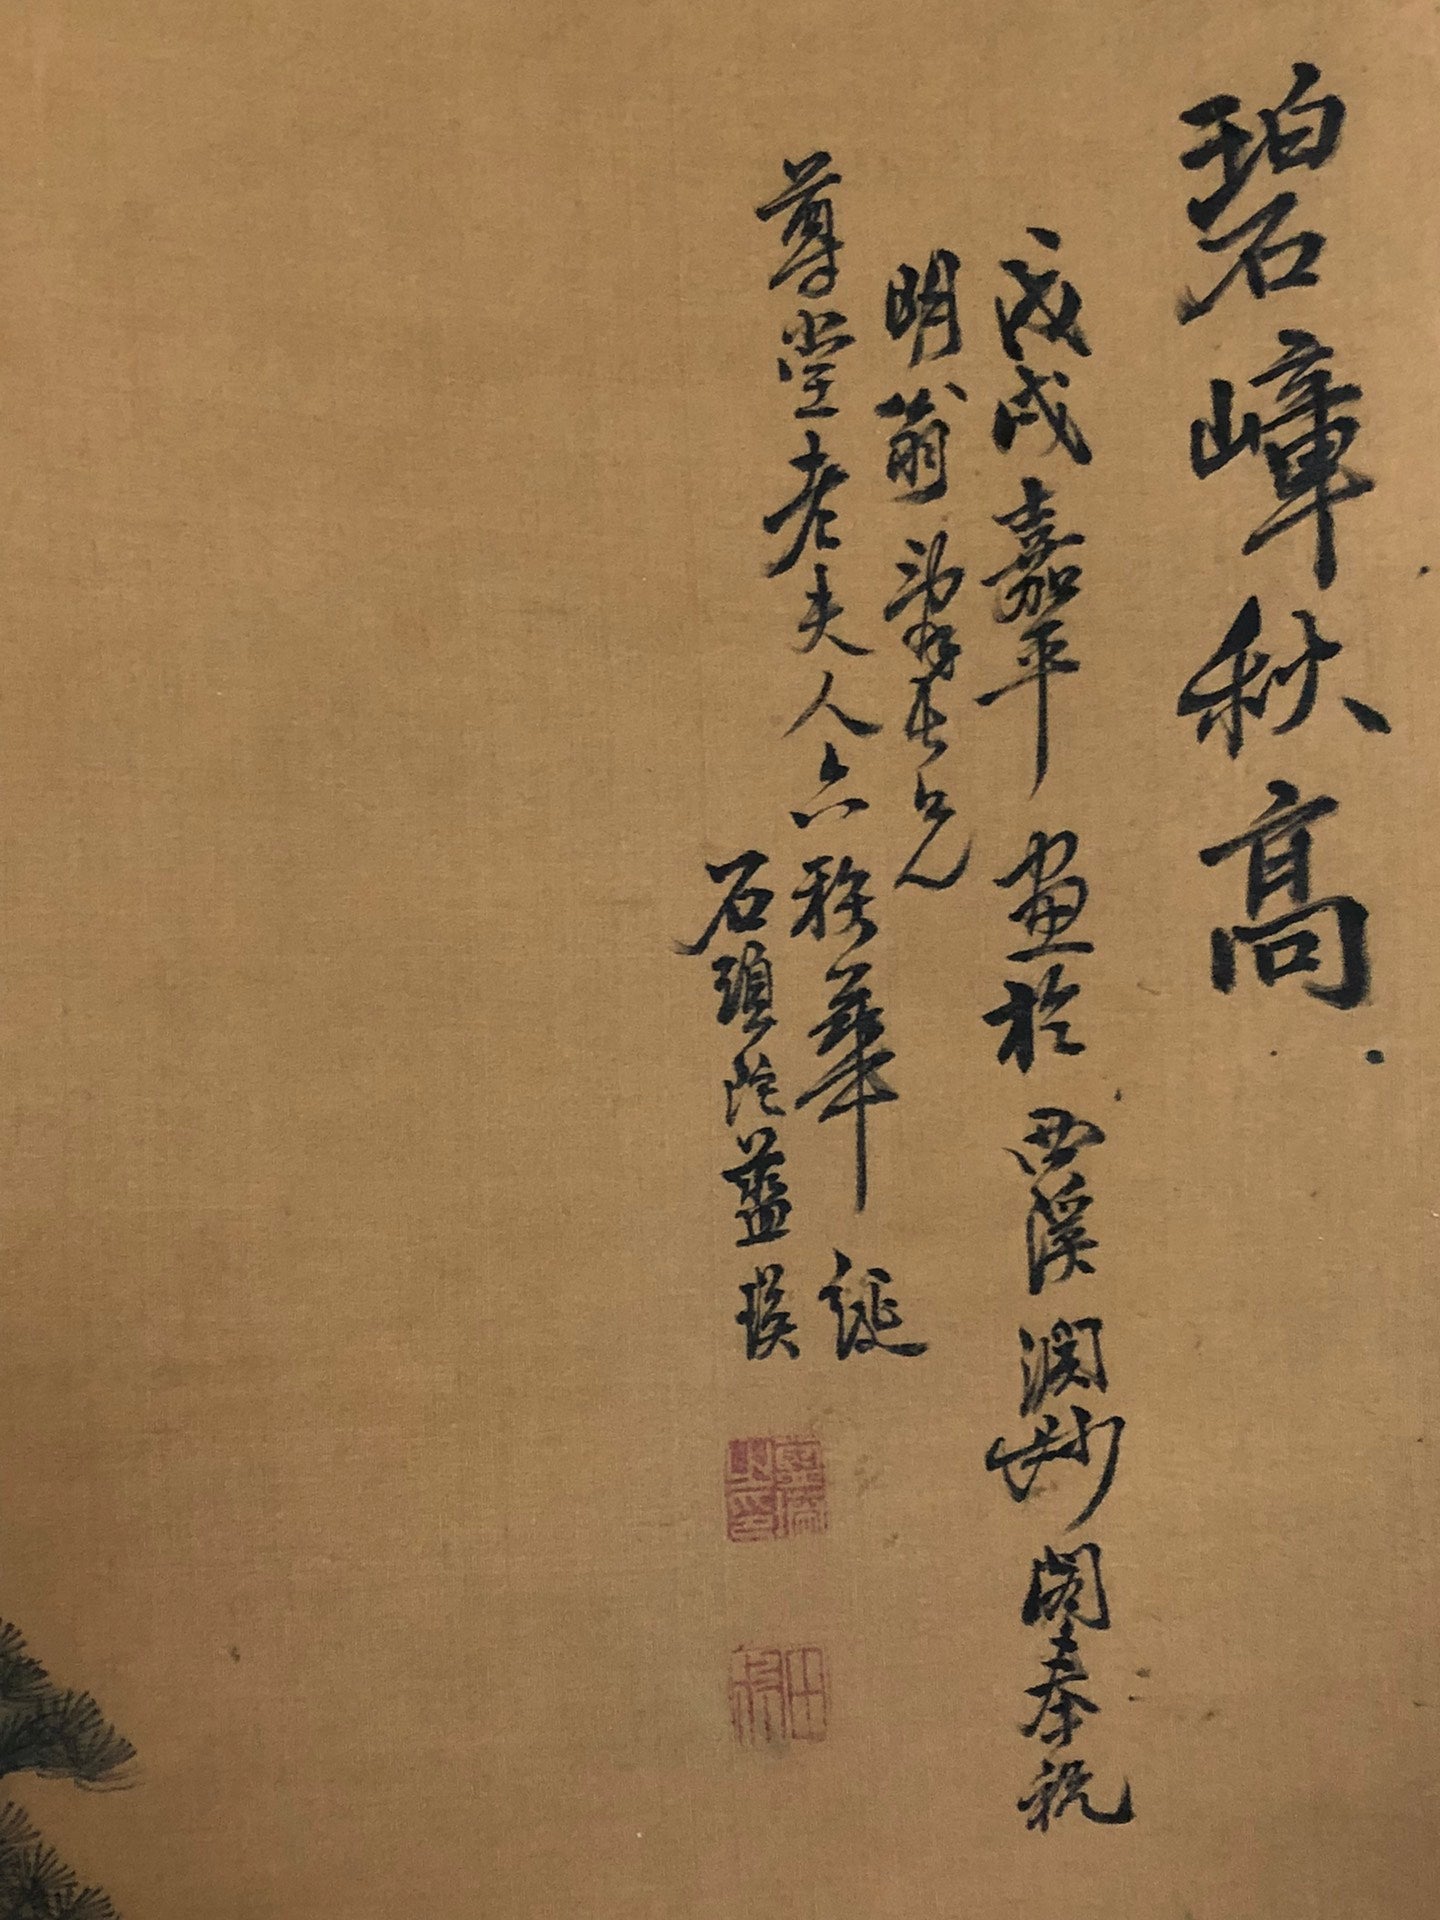 碧嶂秋高
戊戌嘉平畫於西溪澗妙閣奉祝
明翁長兄
尊堂老夫人六袠華誕
石頭陀藍瑛
田叔